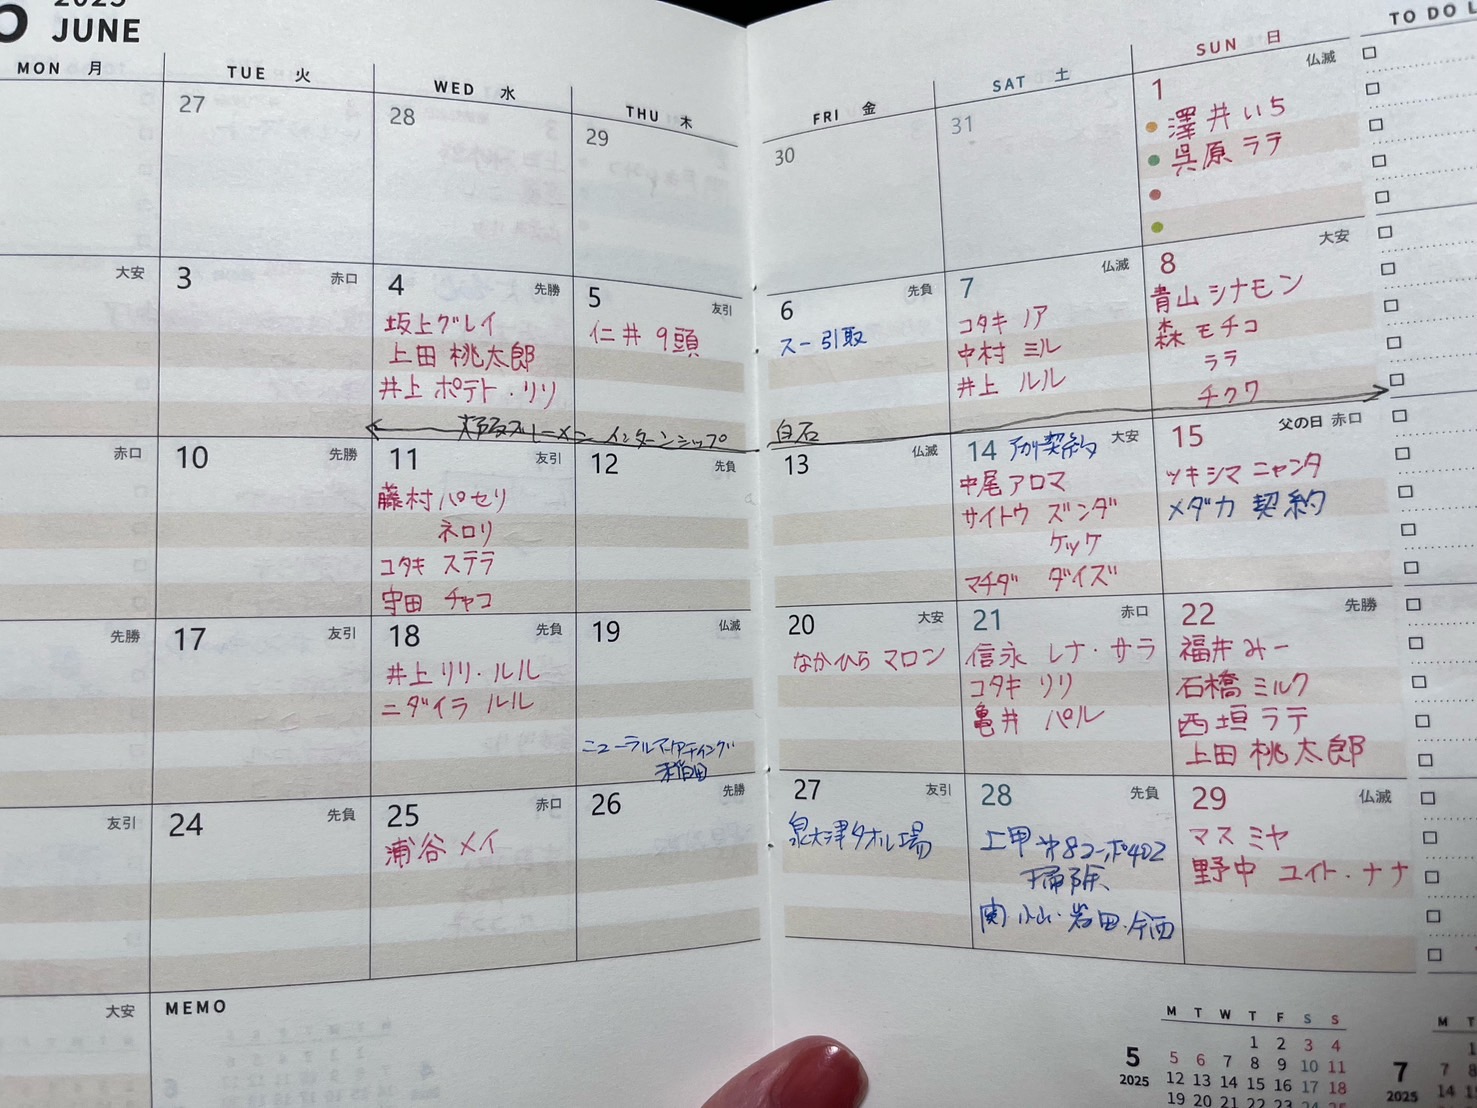 2025
6 JUNE
MON 月
TUE 火
WED 水
THU 木
FRI 金
SAT 土
SUN 日
TO DO L
27
28
29
30
31
1 仏滅
澤井 いち
呉原 ラテ
大安
3 赤口
4 先勝
坂上グレイ
上田 桃太郎
井上 ポテト・リリ
5 友引
仁井 9頭
6 先負
スー 引取
7 仏滅
コタキ ノア
中村 ミル
井上 ルル
8 大安
青山 シナモン
森 モチコ
ララ
チクワ
インターンシップ
白石
赤口
10 先勝
11 友引
藤村 パセリ
ネロリ
コタキ ステラ
守田 チャコ
12 先負
13 仏滅
14 契約 大安
中尾 アロマ
サイトウ ズンダ
ケッケ
マチダ ダイズ
15 父の日 赤口
ツキシマ ニャンタ
メダカ 契約
先勝
17 友引
18 先負
井上 リリ・ルル
ニダイラ ルル
19 仏滅
ニューラルマーケティング
稲田
20 大安
なかひら マロン
21 赤口
信永 レナ・サラ
コタキ リリ
亀井 パル
22 先勝
福井 みー
石橋 ミルク
西垣 ラテ
上田 桃太郎
友引
24 先負
25 赤口
浦谷 メイ
26 先勝
27 友引
泉大津タオル工場
28 先負
上甲 第8コーポ402
掃除
関・小山・岩田・今西
29 仏滅
マス ミヤ
野中 ユイト・ナナ
大安
MEMO
5
2025
M T W T F S S
1 2 3 4
5 6 7 8 9 10 11
12 13 14 15 16 17 18
19 20 21 22 23 24 25
7
2025
M T
1
7 8
14 1